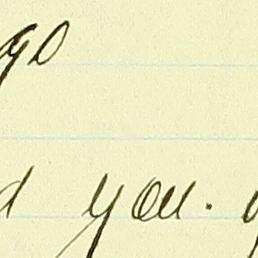 go
d you.